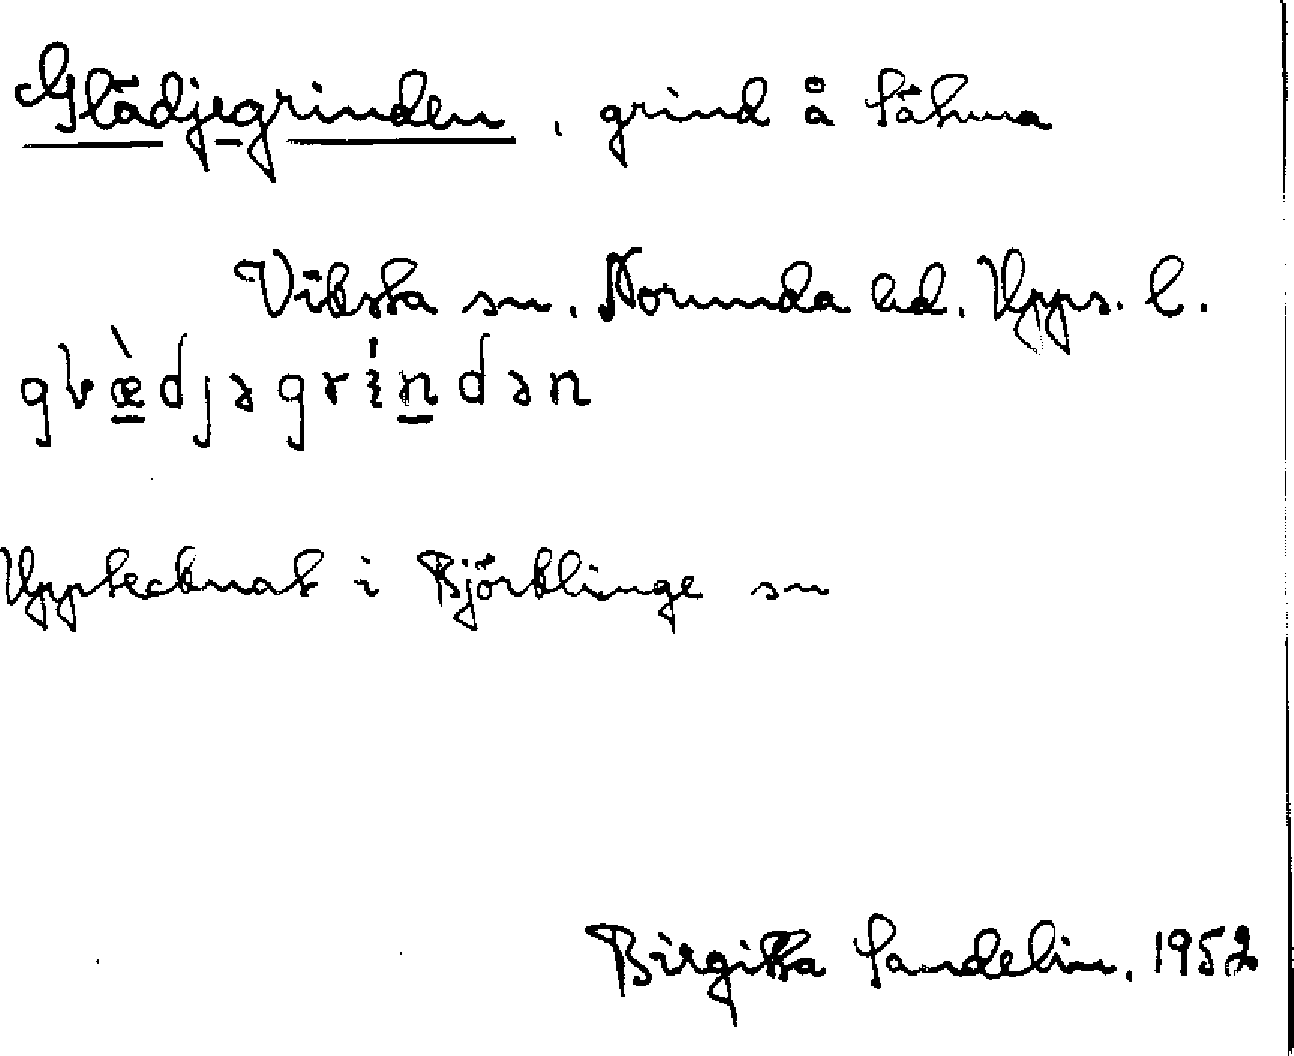 Glädjegrinden, grind å Sätuna
Viksta sn. Norunda hd. Upps. l.
gɽæ̀djəgríndən
Upptecknat i Björklinge sn
Birgitta Sandelin, 1952